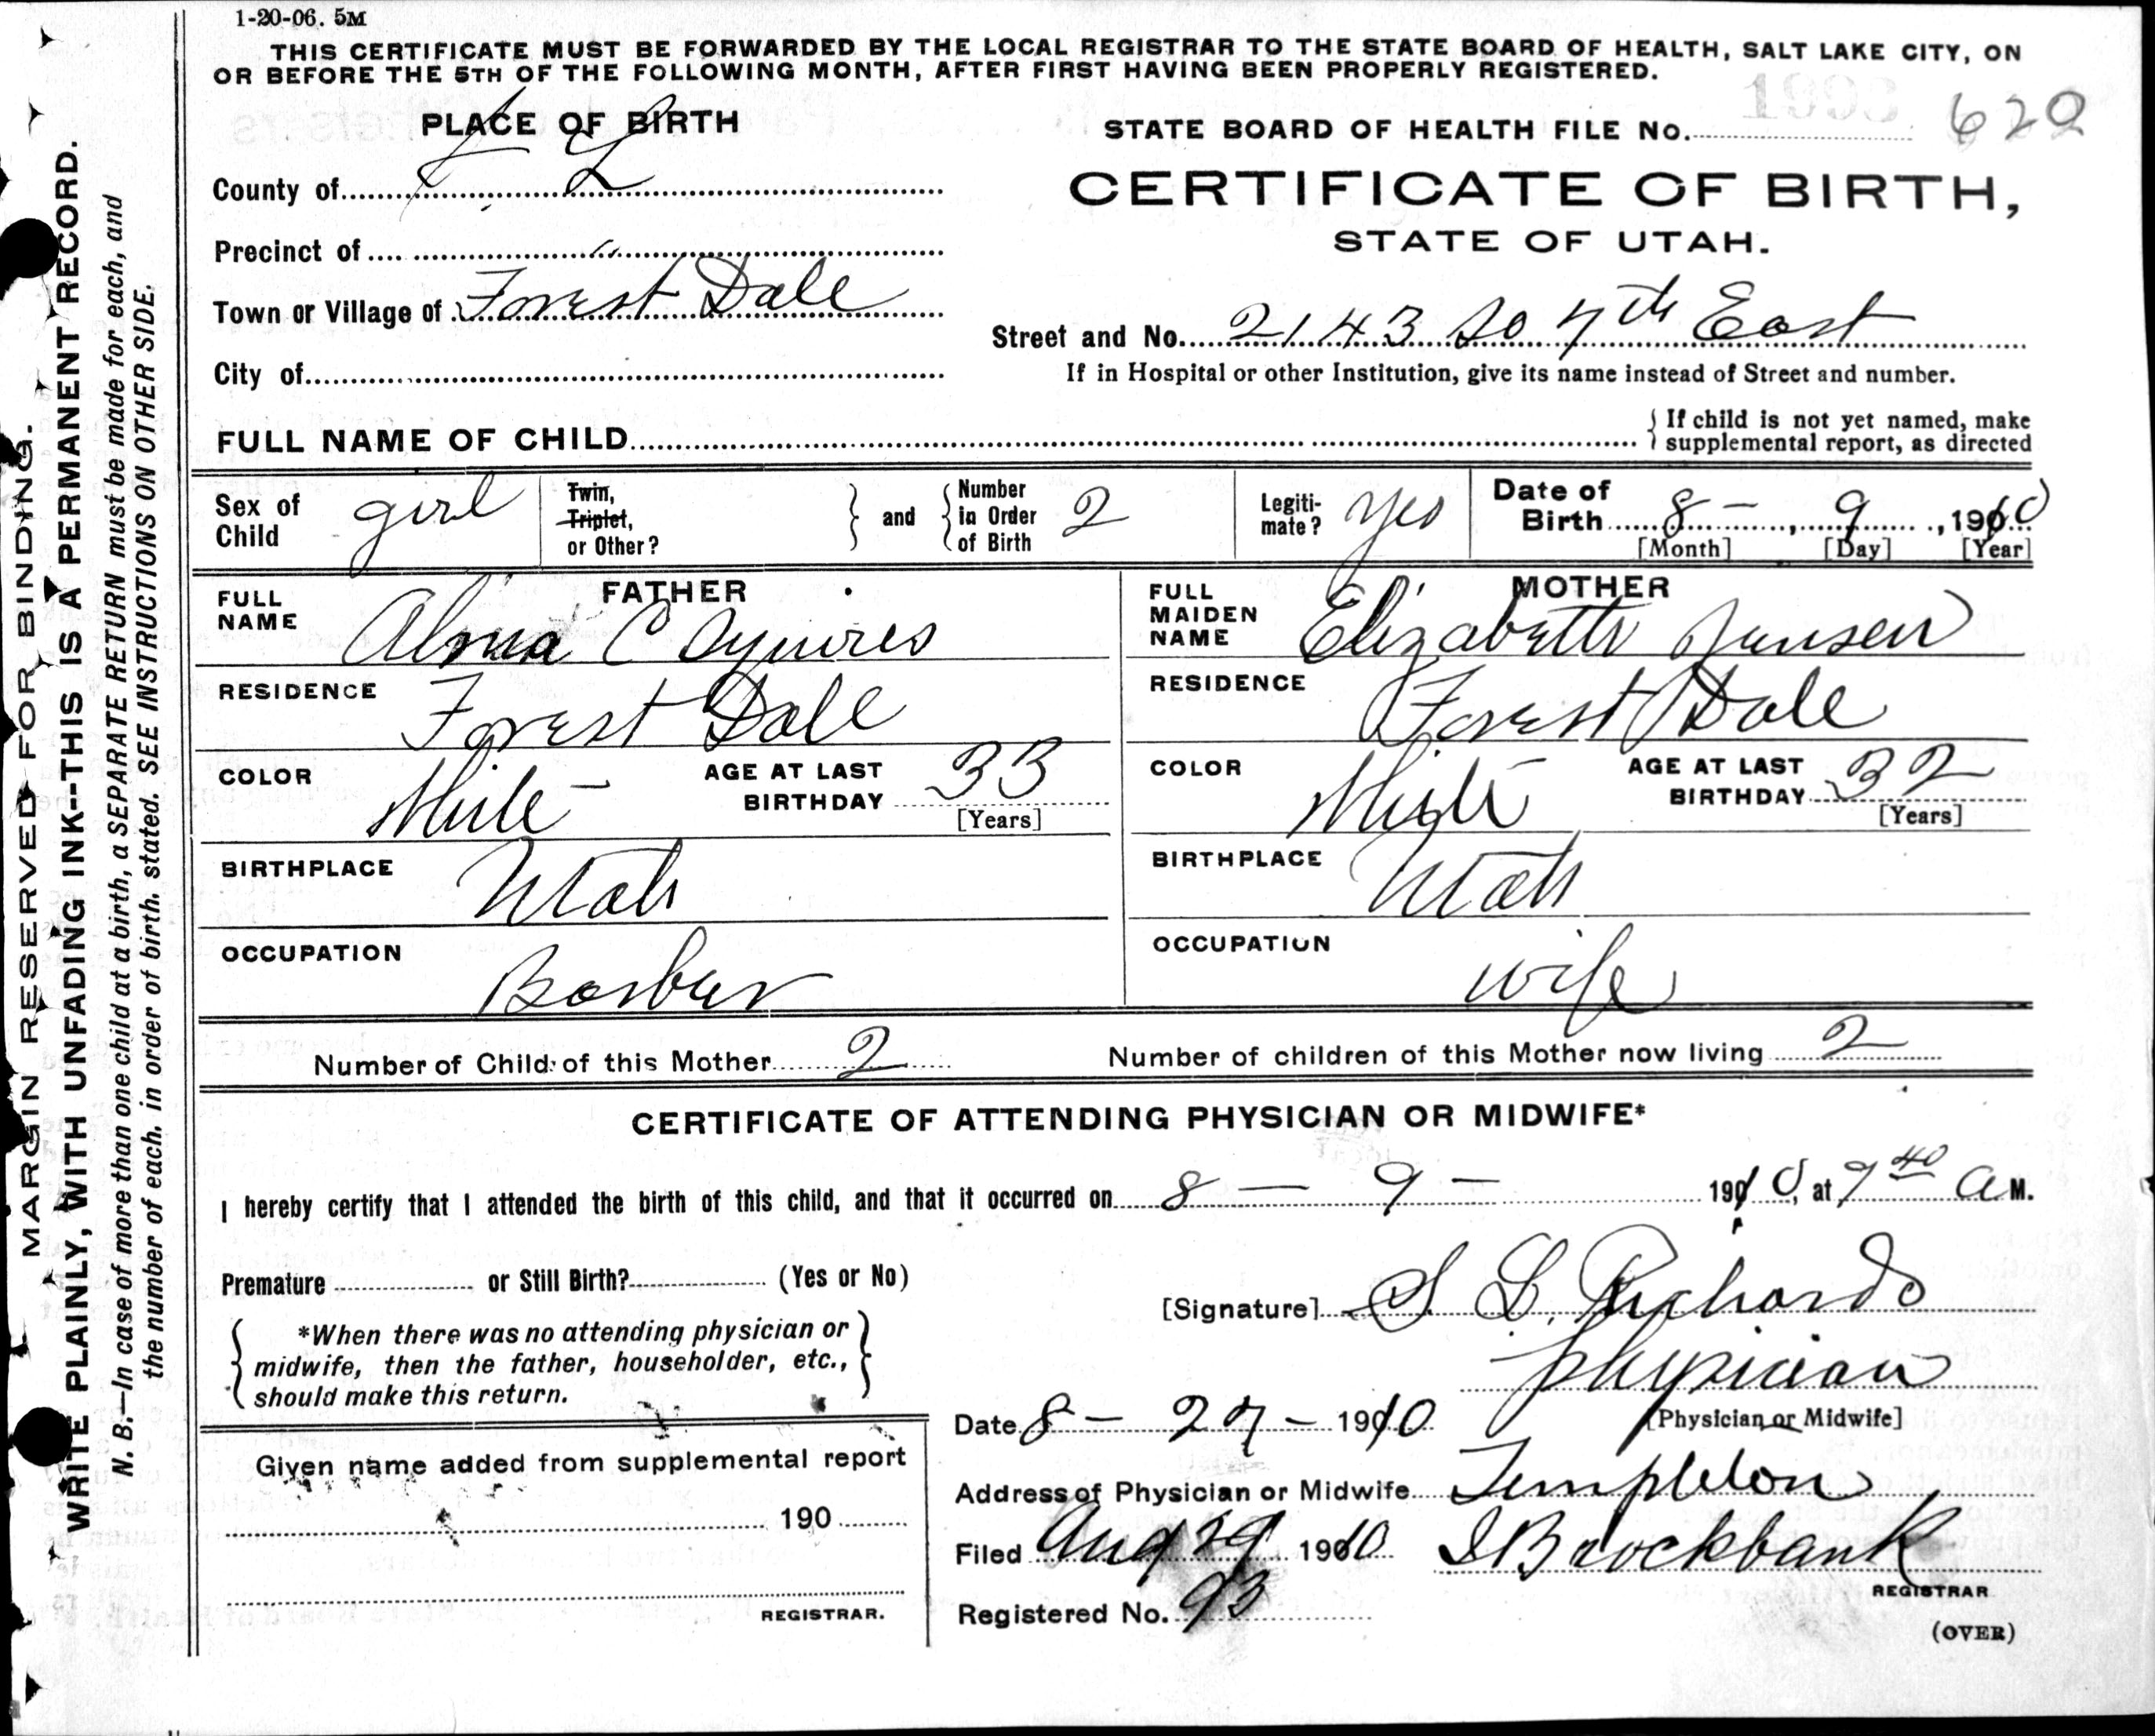 1-20-06. 5M
THIS CERTIFICATE MUST BE FORWARDED BY THE LOCAL REGISTRAR TO THE STATE BOARD OF HEALTH, SALT LAKE CITY, ON
OR BEFORE THE 5TH OF THE FOLLOWING MONTH, AFTER FIRST HAVING BEEN PROPERLY REGISTERED.
PLACE OF BIRTH
County of L
Precinct of "
Town or Village of Forest Dale
City of
STATE BOARD OF HEALTH FILE No. 620
CERTIFICATE OF BIRTH,
STATE OF UTAH.
Street and No. 2143 So 7th East
If in Hospital or other Institution, give its name instead of Street and number.
FULL NAME OF CHILD
If child is not yet named, make
supplemental report, as directed
Sex of Child girl
Twin,
Triplet,
or Other?
and
Number in Order of Birth 2
Legiti-mate? Yes
Date of Birth 8 - , 9 , 1910
[Month] [Day] [Year]
FATHER
FULL NAME Alma C Squires
RESIDENCE Forest Dale
COLOR White
AGE AT LAST BIRTHDAY 33
[Years]
BIRTHPLACE Utah
OCCUPATION Barber
MOTHER
FULL MAIDEN NAME Elizabeth Jensen
RESIDENCE Forest Dale
COLOR White
AGE AT LAST BIRTHDAY 32
[Years]
BIRTHPLACE Utah
OCCUPATION wife
Number of Child of this Mother 2
Number of children of this Mother now living 2
CERTIFICATE OF ATTENDING PHYSICIAN OR MIDWIFE*
I hereby certify that I attended the birth of this child, and that it occurred on 8 - 9 - 1910, at 9 40 a M.
Premature or Still Birth? (Yes or No)
*When there was no attending physician or
midwife, then the father, householder, etc.,
should make this return.
[Signature] S. L. Richards
physician
[Physician or Midwife]
Date 8 - 27 - 1910
Address of Physician or Midwife Templeton
Filed Aug 29 1910 Brockbank
REGISTRAR
Registered No. 93
(OVER)
Given name added from supplemental report
190
REGISTRAR.
MARGIN RESERVED FOR BINDING.
WRITE PLAINLY, WITH UNFADING INK--THIS IS A PERMANENT RECORD.
N. B.—In case of more than one child at a birth, a SEPARATE RETURN must be made for each, and
the number of each, in order of birth, stated. SEE INSTRUCTIONS ON OTHER SIDE.